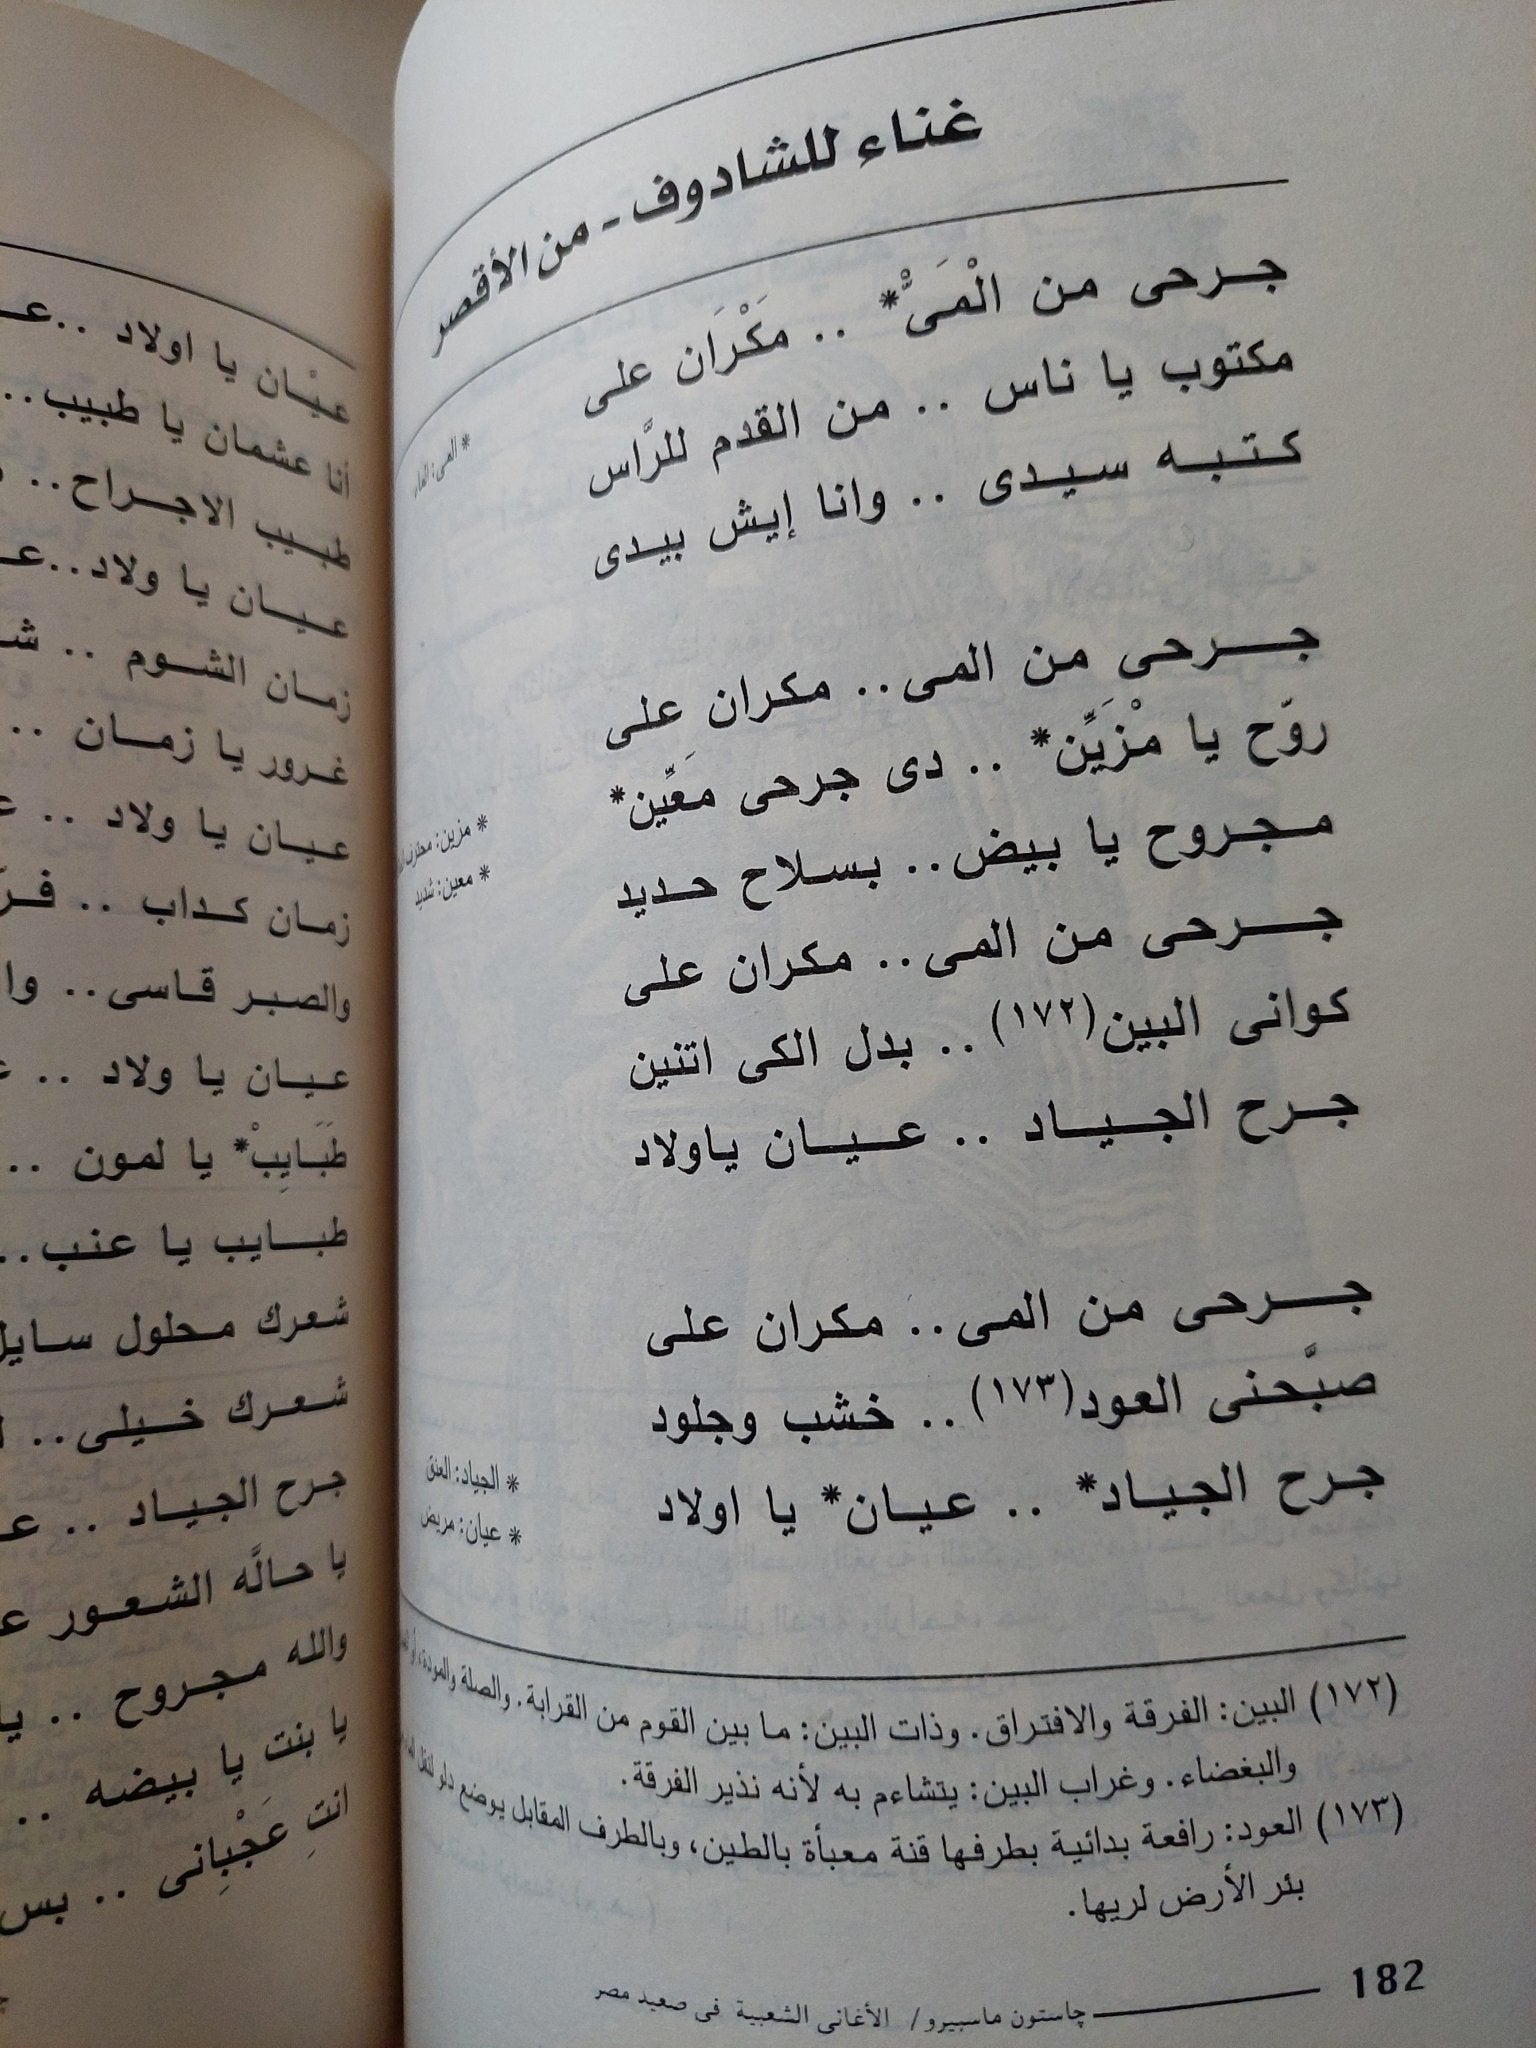 غناء للشادوف - من الأقصر
جرحى من الْمَىّْ* .. مَكْرَان على
مكتوب يا ناس .. من القدم للرَّاس
كتبه سيدى .. وانا إيش بيدى
* المى: الماء
جرحى من المى .. مكران على
روّح يا مْزَيِّن* .. دى جرحى معَيِّن*
مجروح يا بيض .. بسلاح حديد
* مزين: محترف
* معين: شديد
جرحى من المى .. مكران على
كوانى البين(١٧٢) .. بدل الكى اتنين
جرح الجياد .. عيان ياولاد
جرحى من المى .. مكران على
صبَّحنى العود(١٧٣) .. خشب وجلود
جرح الجياد* .. عيان* يا اولاد
* الجياد: العنق
* عيان: مريض
(١٧٢) البين: الفرقة والافتراق. وذات البين: ما بين القوم من القرابة. والصلة والمودة، أو
والبغضاء. وغراب البين: يتشاءم به لأنه نذير الفرقة.
(١٧٣) العود: رافعة بدائية بطرفها قنة معبأة بالطين، وبالطرف المقابل يوضع دلو لنقل
بئر الأرض لريها.
182
چاستون ماسبيرو/ الأغانى الشعبية فى صعيد مصر
عيْان يا اولاد ..
أنا عشمان يا طبيب..
طبيب الاجراح..
عيان يا ولاد..
زمان الشوم ..
غرور يا زمان ..
عيان يا ولاد ..
زمان كداب ..
والصبر قاسى..
عيان يا ولاد ..
طَبَايِبْ* يا لمون ..
طبايب يا عنب..
شعرك محلول سايل
شعرك خيلى..
جرح الجياد ..
يا حالَّه الشعور
والله مجروح ..
يا بنت يا بيضه ..
انتِ عَجْبِانى .. بس